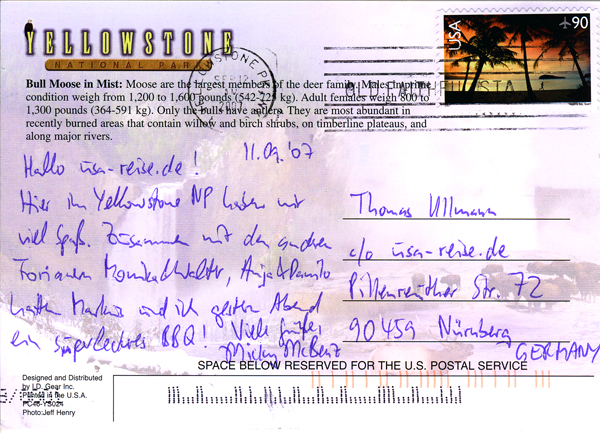 YELLOWSTONE
NATIONAL PARK
USA
90
Bull Moose in Mist: Moose are the largest members of the deer family. Males in prime
condition weigh from 1,200 to 1,600 pounds (542-725 kg). Adult females weigh 800 to
1,300 pounds (364-591 kg). Only the bulls have antlers. They are most abundant in
recently burned areas that contain willow and birch shrubs, on timberline plateaus, and
along major rivers.
11.09.'07
Hallo usa-reise.de!
Hier im Yellowstone NP haben wir
viel Spaß. Zusammen mit den anderen
Forianern Monika & Walter, Anja & Danilo
hatten Markus und ich gestern Abend
ein superleckeres BBQ! Viele Grüße,
Micky McBenz
Thomas Ullmann
c/o usa-reise.de
Pillenreuther Str. 72
90459 Nürnberg
GERMANY
SPACE BELOW RESERVED FOR THE U.S. POSTAL SERVICE
Designed and Distributed
by I.D. Gear Inc.
Printed in the U.S.A.
PC46-YS024
Photo:Jeff Henry